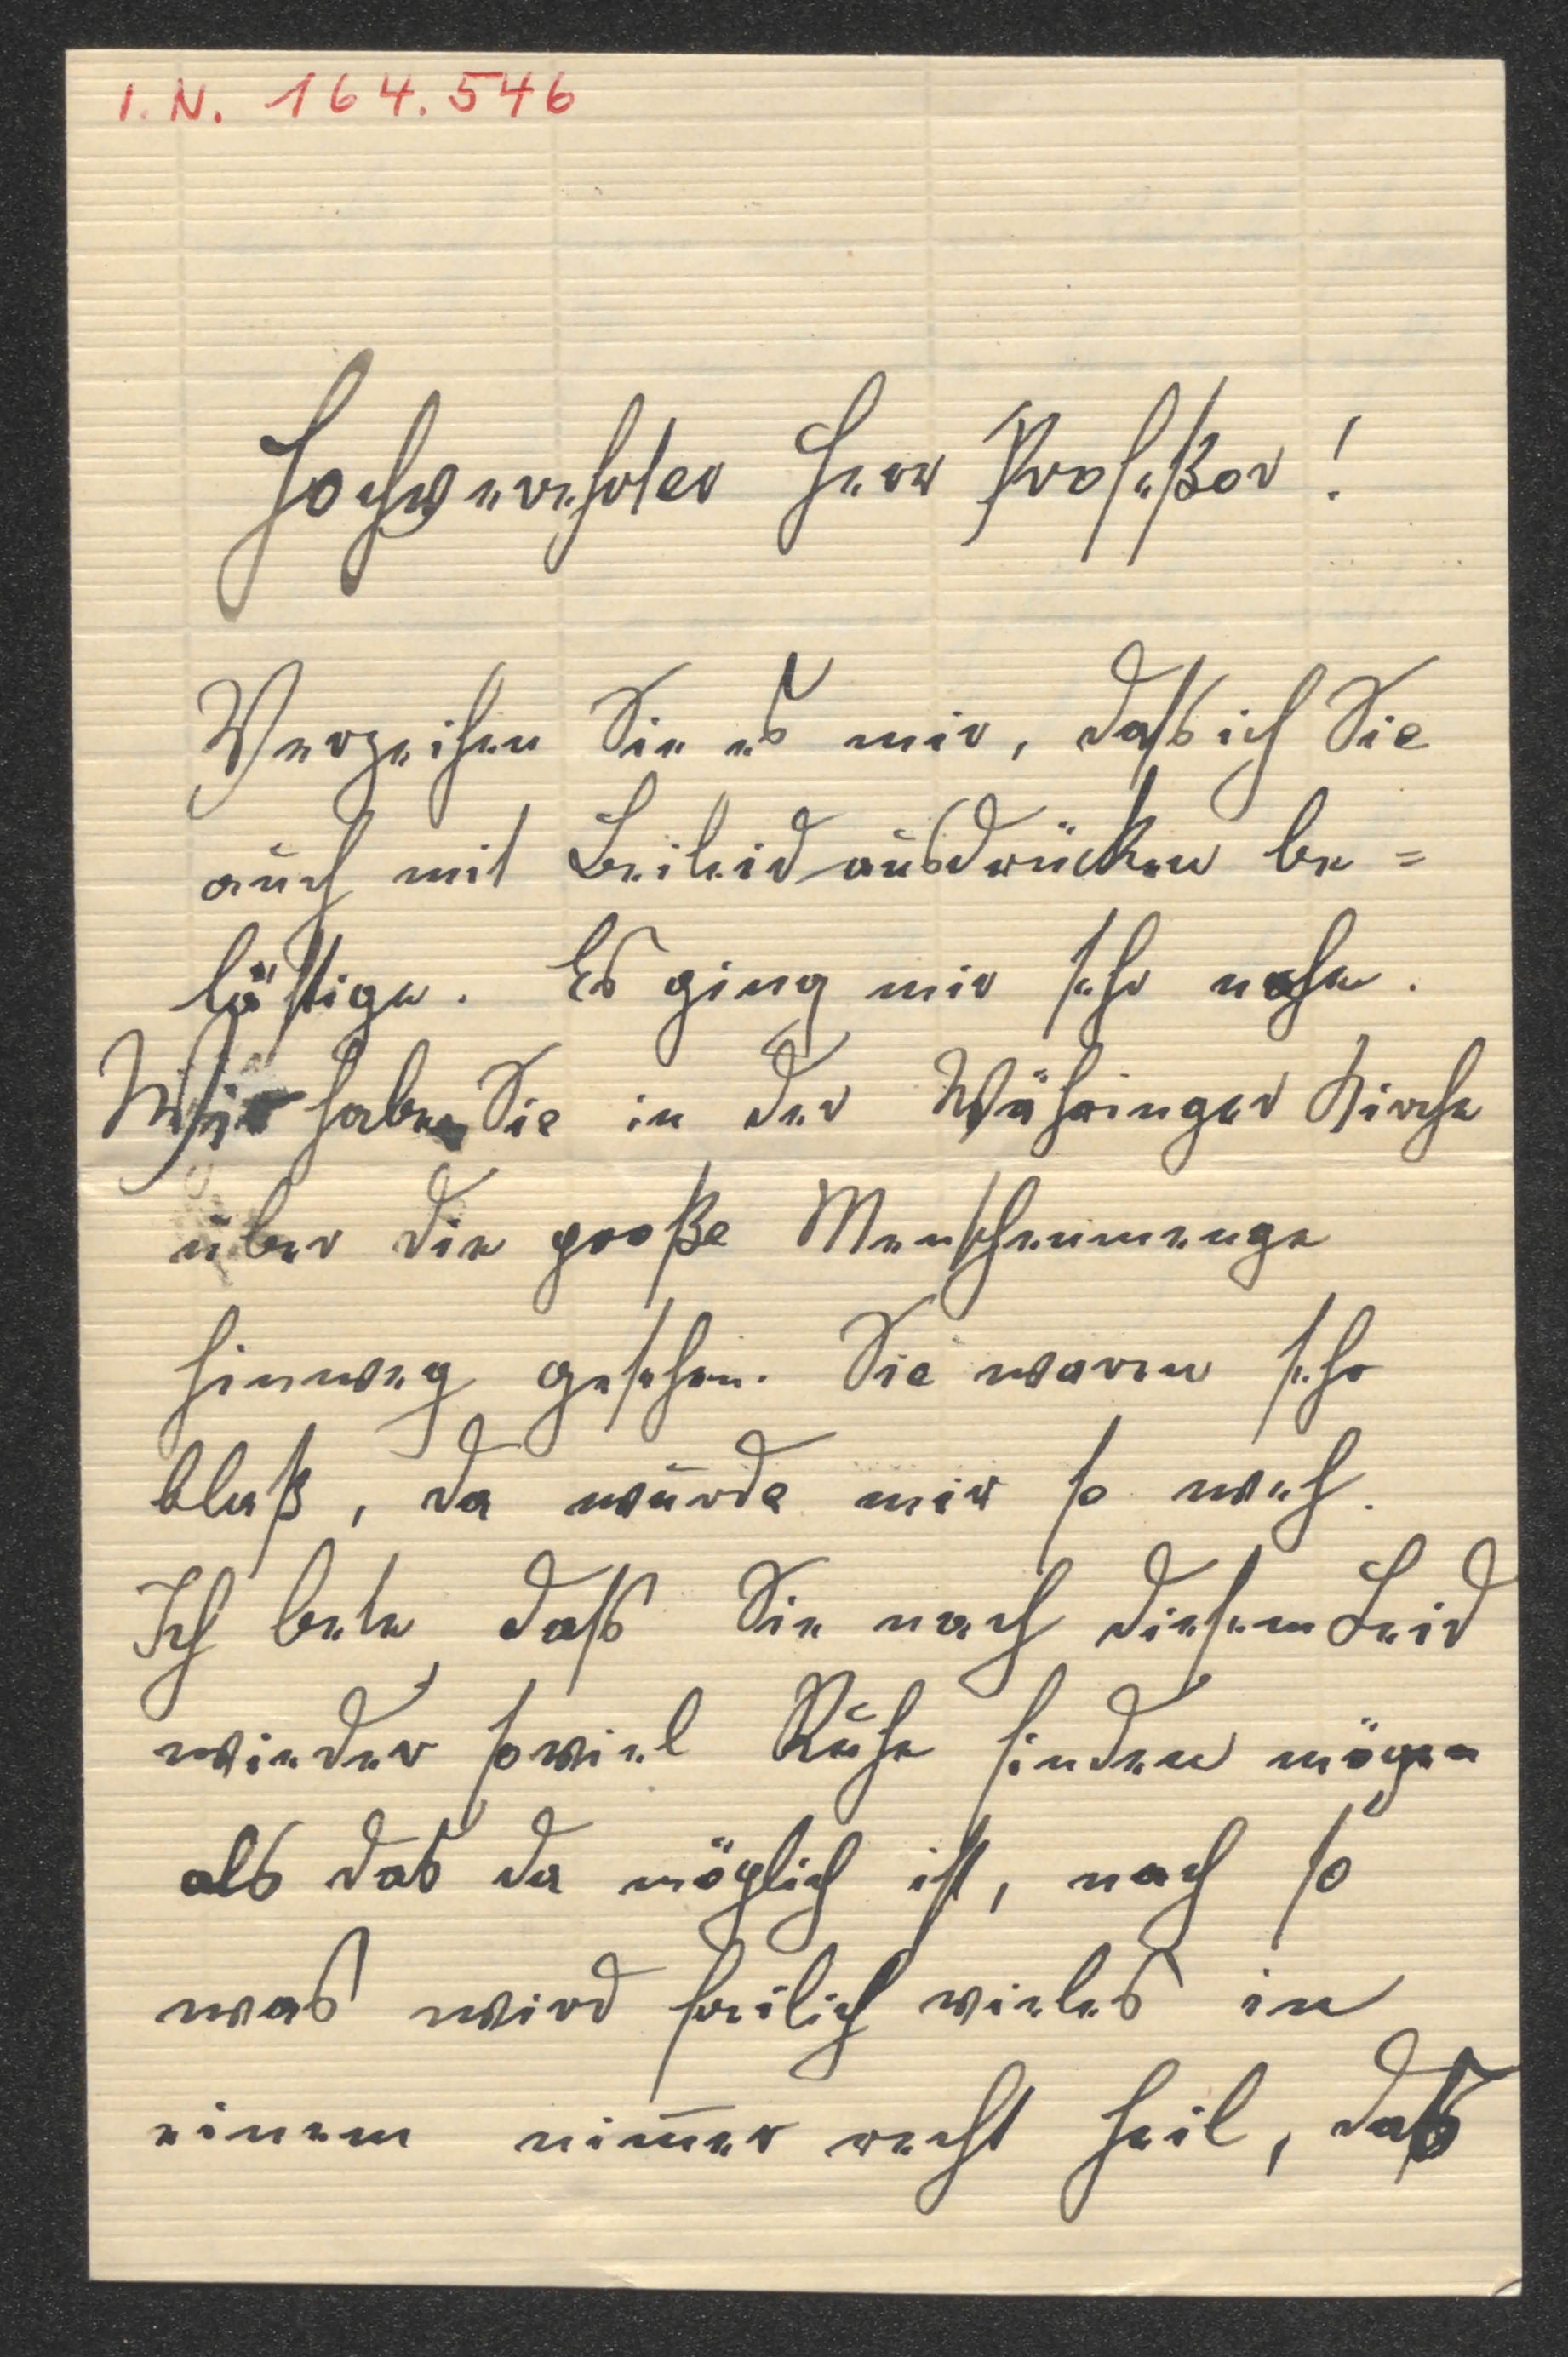 I.N. 164.546
Hochverehrter Herr Profeßor!
Verzeihen Sie es mir, dass ich Sie
auch mit Beileidausdrücken be=
lästige. Es ging mir sehr nahe.
Wir haben Sie in der Währinger Kirche
über die große Menschenmenge
hinweg gesehen. Sie waren sehr
blaß, da wurde mir so weh.
Ich bete, dass Sie nach diesem Leid
wieder soviel Ruhe finden mögen
als das da möglich ist, nach so
was wird freilich vieles in
einem nim̅er recht heil, dass